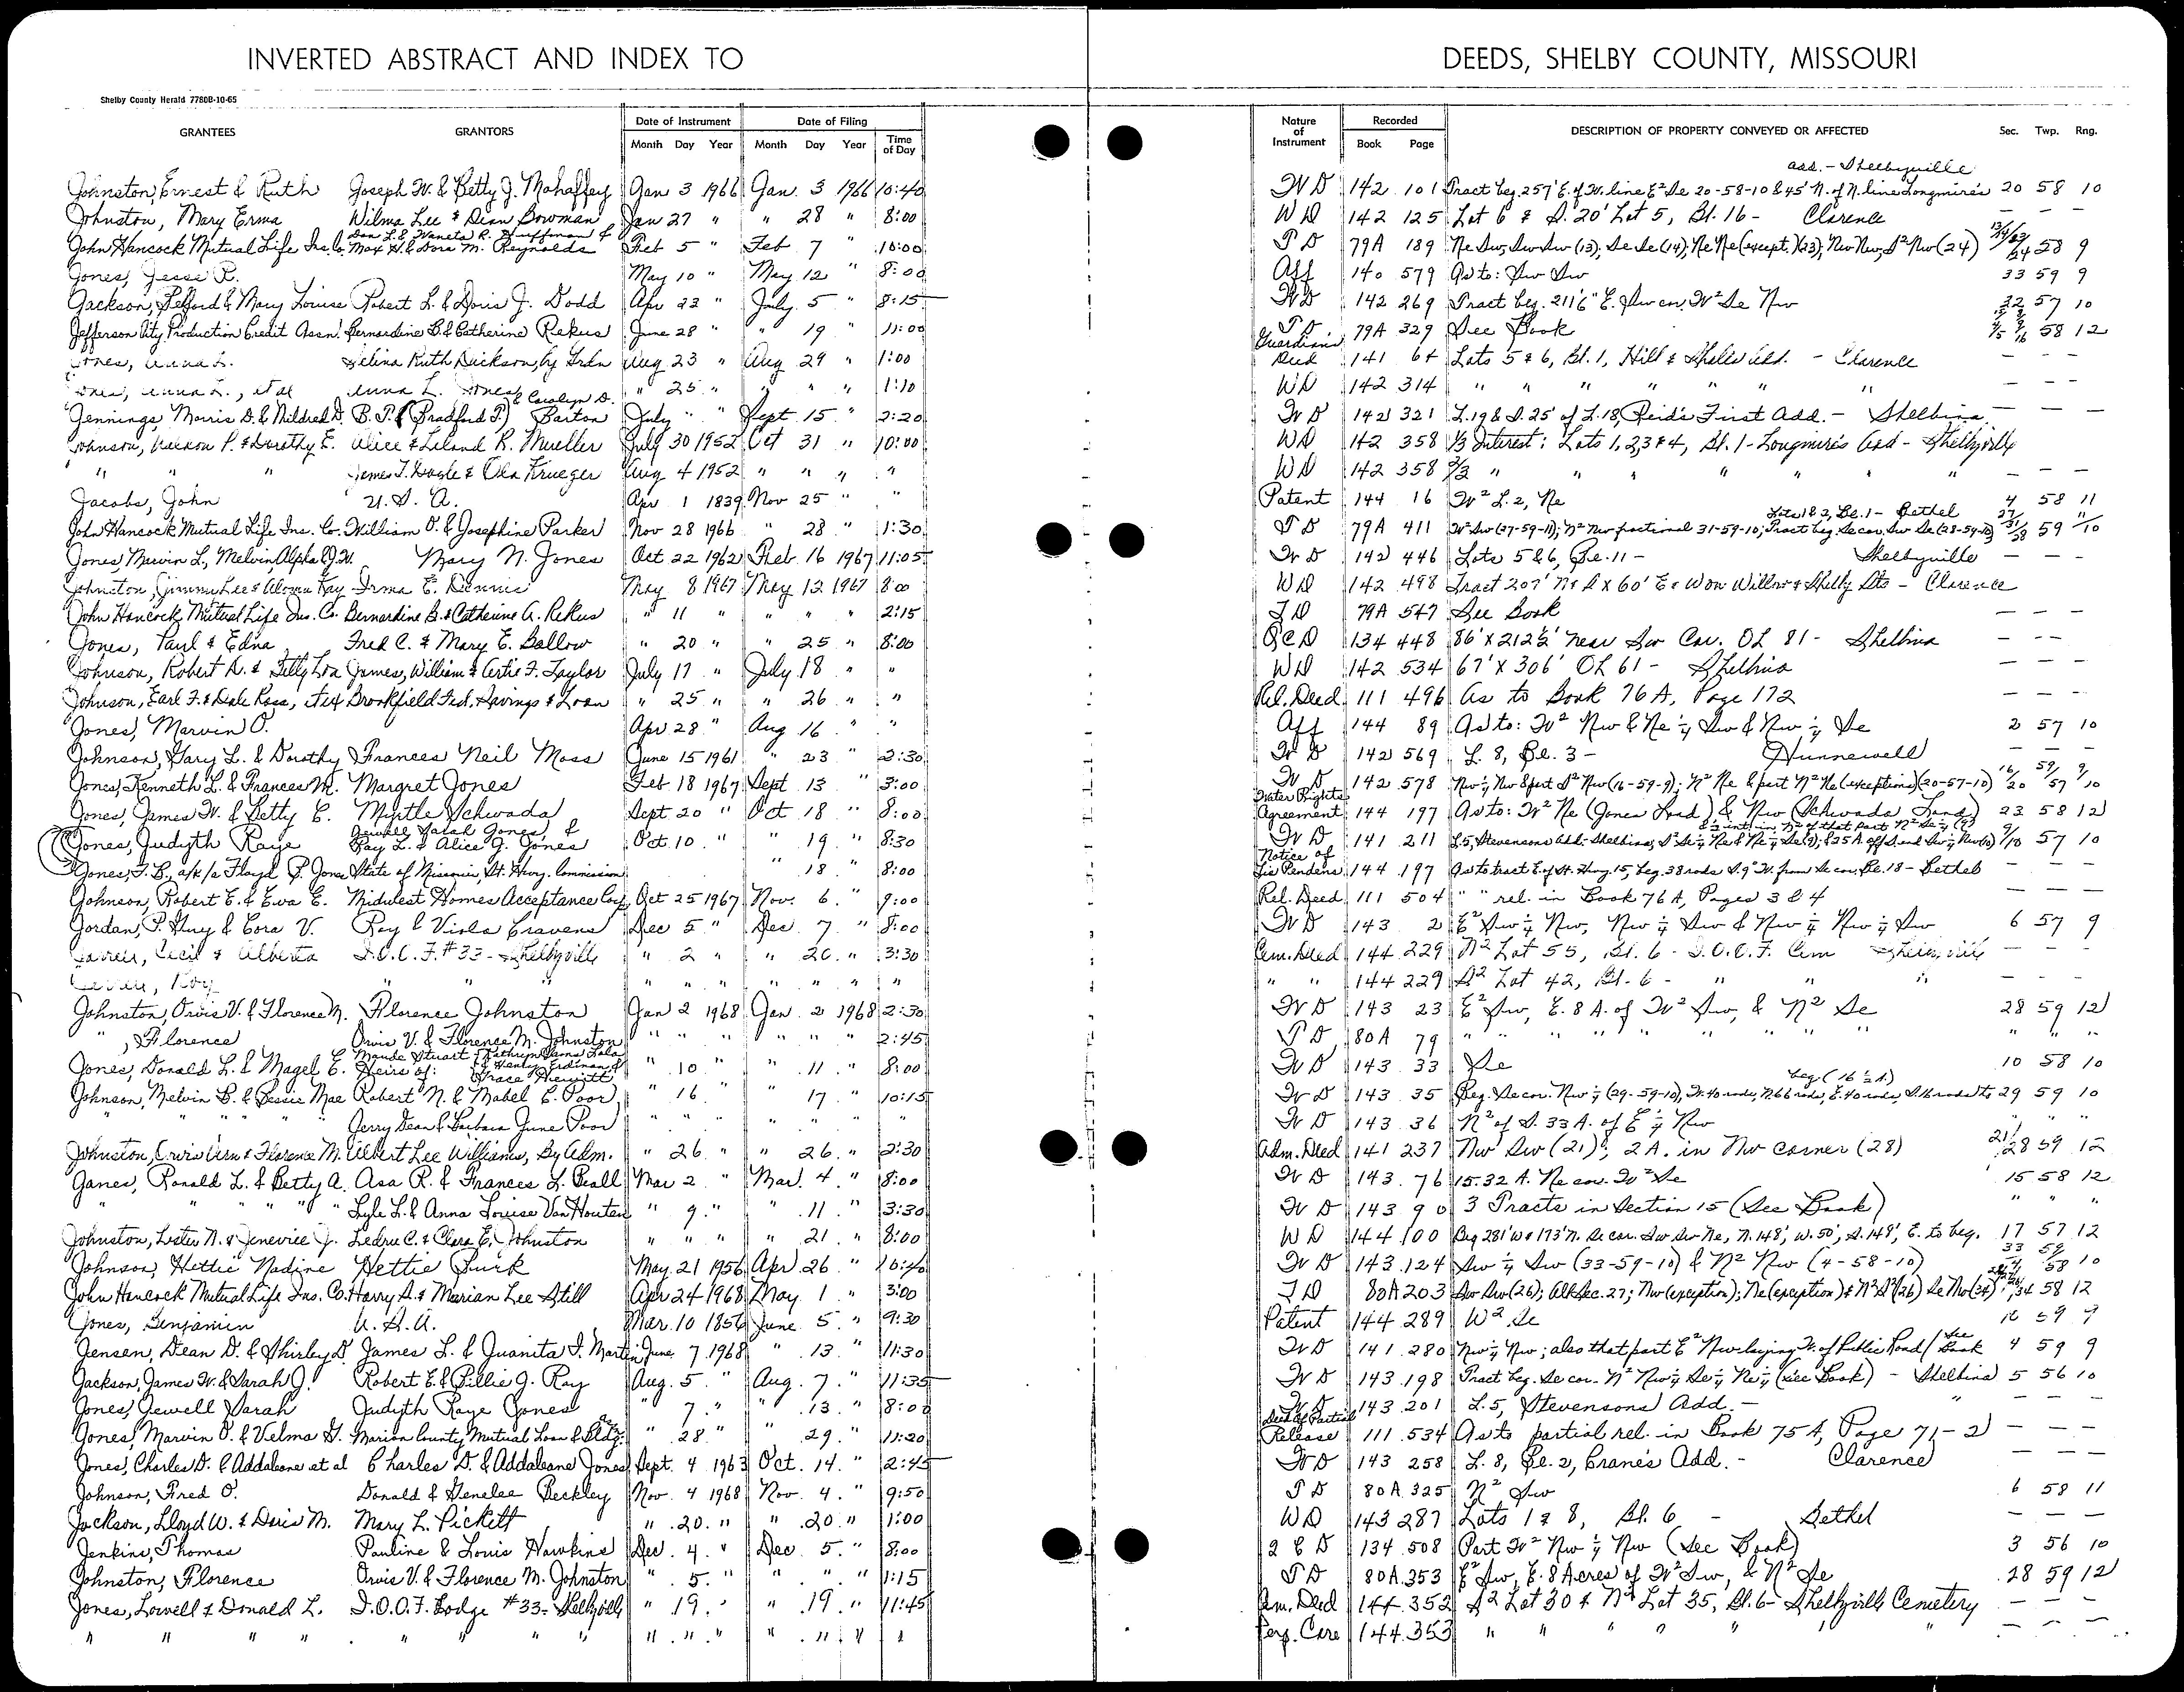 INVERTED ABSTRACT AND INDEX TO DEEDS, SHELBY COUNTY, MISSOURI
Shelby County Herald 7780B-10-65
GRANTEES GRANTORS Date of Instrument Month Day Year Date of Filing Month Day Year Time of Day Nature of Instrument Recorded Book Page DESCRIPTION OF PROPERTY CONVEYED OR AFFECTED Sec. Twp. Rng.
add. - Shelbyville
Johnston, Ernest & Ruth Joseph W. & Betty J. Mahaffey Jan 3 1966 Jan. 3 1966 10:40 W D 142 101 Tract beg. 257' E. of W. line E² Se 20-58-10 & 45' N. of N. line Longmire's 20 58 10
Johnston, Mary Erma Wilma Lee & Dean Bowman Jan 27 " " 28 " 8:00 W D 142 125 Lot 6 & S. 20' Lot 5, Bl. 16 - Clarence — — —
Don L. & Waneta R. Huffman &
John Hancock Mutual Life Ins. Co. Max H. & Dora M. Reynolds Feb 5 " Feb 7 " 10:00 T D 79A 189 Ne Sw, Sw Sw (13); Se Se (14); Ne Ne (except.) (23); Nw Nw, S² Nw (24) 13/14/23/24 58 9
Jones, Jesse R. May 10 " May 12 " 8:00 Aff 140 579 As to: Sw Sw 33 59 9
Jackson, Bufford & Mary Louise Robert L. & Doris J. Dodd Apr 22 " July 5 " 8:15 W D 142 269 Tract beg. 211'6" E. Sw cor. W² Se Nw 32 57 10
Jefferson City Production Credit Assn. Bernardine B. & Catherine Rekus June 28 " " 19 " 11:00 T D 79A 329 See Book 58 12
Jones, Anna L. Selina Ruth Dickson, by Grdn Aug 23 " Aug 29 " 1:00 Guardians Deed 141 64 Lots 5 & 6, Bl. 1, Hill & Shells add. - Clarence — — —
Jones, Anna L., et al Anna L. Jones " 25 " " " " 1:10 W D 142 314 " " " " " " " — — —
& Carolyn D.
Jennings, Morris D. & Mildred D. B. P. (Bradford P.) Barton July " " Sept 15 " 2:20 W D 142 321 L. 19 & S. 25' of L. 18, Reid's First Add. - Shelbina — — —
Johnson, Vernon P. & Dorothy E. Alice & Leland R. Mueller July 30 1952 Oct 31 " 10:00 W D 142 358 1/3 Interest: Lots 1, 2, 3 & 4, Bl. 1 - Longmire's Add - Shelbyville
" " " James T. Hoyle & Ola Krueger Aug 4 1952 " " " " W D 142 358 2/3 " " " " " " — — —
Jacobs, John U. S. A. Apr 1 1839 Nov 25 " " Patent 144 16 W² L. 2, Ne 4 58 11
Lots 1 & 2, Bl. 1 - Bethel
John Hancock Mutual Life Ins. Co. William O. & Josephine Parker Nov 28 1966 " 28 " 1:30 T D 79A 411 W² Sw (27-59-11); N² Nw fractional 31-59-10; Tract beg. Se cor. Sw Se (28-59-10) 27/31/28 59 11/10
Jones, Marvin L., Melvin, Alpha & J.W. Mary N. Jones Oct 22 1962 Feb. 16 1967 11:05 W D 142 446 Lots 5 & 6, Bl. 11 - Shelbyville — — —
Johnston, Jimmy Lee & Alorna Kay Irma E. Dennis May 8 1967 May 12 1967 8:00 W D 142 498 Tract 207' N & S X 60' E & W on Willow & Shelby Sts - Clarence
John Hancock Mutual Life Ins. Co. Bernardine B. & Catherine A. Rekus " 11 " " " " 2:15 T D 79A 547 See Book — — —
Jones, Paul & Edna Fred C. & Mary E. Ballow " 20 " " 25 " 8:00 Q C D 134 448 86' X 212½' near Sw Cor. OL 81 - Shelbina — — —
Johnson, Robert D. & Billy Lea James, William & Certie F. Taylor July 17 " July 18 " " W D 142 534 67' X 306' OL 61 - Shelbina — — —
Johnson, Earl F. & Dale Ross, et ux Brookfield Fed. Savings & Loan " 25 " " 26 " " Rel. Deed 111 496 As to Book 76 A, Page 172 — — —
Jones, Marvin O. Apr 28 " Aug 16 " " Aff 144 89 As to: W² Nw & Ne ¼ Sw & Nw ¼ Se 2 57 10
Johnson, Gary L. & Dorothy Frances Neil Moss June 15 1961 " 23 " 2:30 W D 142 569 L. 8, Bl. 3 - Hunnewell — — —
Jones, Kenneth L. & Frances M. Margret Jones Feb 18 1967 Sept. 13 " 3:00 W D 142 578 Nw ¼ Nw & part S² Nw (16-59-9); N² Ne & part N² Ne (exceptions) (20-57-10) 16/20 59/57 9/10
Jones, James W. & Betty E. Myrtle Schwada Sept 20 " Oct 18 " 8:00 Water Rights Agreement 144 197 As to: W² Ne (Jones Land) & Nw (Schwada Land) 23 58 12
Jewell Sarah Jones, &
Jones, Judyth Raye Ray L. & Alice G. Jones Oct. 10 " " 19 " 8:30 W D 141 211 L. 5, Stevensons Add. - Shelbina; 57 10
Jones, F. B., a/k/a Floyd B. Jones State of Missouri, St. Hwy. Commission " 18 " 8:00 Notice of Lis Pendens 144 197 As to tract E. of St. Hwy. 15, beg. 38 rods S. 9° W. from Se cor. Bl. 18 - Bethel
Johnson, Robert E. & Eva E. Midwest Homes Acceptance Corp. Oct 25 1967 Nov. 6 " 9:00 Rel. Deed 111 504 " " rel. in Book 76 A, Pages 3 & 4 — — —
Jordan, P. Huy & Cora V. Roy & Viola Cravens Dec 5 " Dec. 7 " 8:00 W D 143 2 E² Sw ¼ Nw, Nw ¼ Sw & Nw ¼ Nw ¼ Sw 6 57 9
Cecil & Alberta I.O.O.F. #33 - Shelbyville " 2 " " 20 " 3:30 Cem. Deed 144 229 N² Lot 55, Bl. 6 - I.O.O.F. Cem Shelbyville — — —
Roy " " " " " " " " " " " 144 229 S² Lot 42, Bl. 6 - " " " — — —
Johnston, Orvis V. & Florence M. Florence Johnston Jan 2 1968 Jan. 2 1968 2:30 W D 143 23 E² Sw, E. 8 A. of W² Sw, & N² Se 28 59 12
", Florence Orvis V. & Florence M. Johnston " " " " " " 2:45 T D 80A 79 " " " " " " " " " " "
Maude Stuart
Jones, Donald L. & Magel E. Heirs of: Grace Hewitt " 10 " " 11 " 8:00 W D 143 33 Se 10 58 10
beg. (16½ A)
Johnson, Melvin B. & Bessie Mae Robert N. & Mabel E. Poor " 16 " 17 " 10:15 W D 143 35 Beg. Se cor. Nw ¼ (29-59-10), W. 40 rods, N. 66 rods, E. 40 rods, S. 66 rods to 29 59 10
" " " Jerry Dean & Barbara June Poor " " " " " " " W D 143 36 N² of S. 33 A. of E ¼ Nw " " "
Johnston, Orvis Vern & Florence M. Albert Lee Williams, By Adm. " 26 " " 26 " 2:30 Adm. Deed 141 237 Nw Sw (21); 2 A. in Nw corner (28) 21/28 59 12
Janes, Ronald L. & Betty A. Asa R. & Frances L. Beall Mar 2 " Mar. 4 " 8:00 W D 143 76 15.32 A. Ne cor. W² Se 15 58 12
" " " " Lyle L. & Anna Louise Van Houten " 9 " " 11 " 3:30 W D 143 90 3 Tracts in Section 15 (See Book) " " "
Johnston, Lester N. & Jenevice J. Ledru C. & Clara E. Johnston " " " " 21 " 8:00 W D 144 100 Beg 281' W & 173' N. Se cor. Sw Sw Ne, N. 148', W. 50', S. 148', E. to beg. 17 57 12
Johnson, Hettie Nadine Hettie Quirk May 21 1956 Apr 26 " 10:40 W D 143 124 Sw ¼ Sw (33-59-10) & N² Nw (4-58-10) 33/4 59/58 10
John Hancock Mutual Life Ins. Co. Harry A. & Marian Lee Still Apr 24 1968 May 1 " 3:00 T D 80A 203 Sw Sw (26); All Sec. 27; Nw (exception); Ne (exception) & N² S² (26) Se Nw (34) 34 58 12
Jones, Benjamin U. S. A. Mar. 10 1856 June 5 " 9:30 Patent 144 289 W² Se 10 59 9
Jensen, Dean D. & Shirley D. James L. & Juanita I. Martin June 7 1968 " 13 " 11:30 W D 141 280 Nw ¼ Nw; also that part E² Nw laying W. of Public Road / See Book 4 59 9
Jackson, James W. & Sarah J. Robert E. & Billie J. Ray Aug. 5 " Aug. 7 " 11:35 W D 143 198 Tract beg. Se cor. N² Nw ¼ Se ¼ Ne ¼ (See Book) - Shelbina 5 56 10
Jones, Jewell Sarah Judyth Raye Jones " 7 " " 13 " 8:00 W D 143 201 L. 5, Stevensons Add. - " — — —
Jones, Marvin O. & Velma G. Marion County Mutual Loan & Bldg. As. " 28 " " 29 " 11:20 Deed of Partial Release 111 534 As to partial rel. in Book 75 A, Page 71-2 — — —
Jones, Charles D. & Addaleane et al Charles D. & Addaleane Jones Sept. 4 1963 Oct. 14 " 2:45 W D 143 258 L. 8, Bl. 2, Crane's Add. - Clarence — — —
Johnson, Fred O. Donald & Genelee Beckley Nov. 4 1968 Nov. 4 " 9:50 T D 80A 325 N² Sw 6 58 11
Jackson, Lloyd W. & Doris M. Mary L. Pickett " 20 " " 20 " 1:00 W D 143 287 Lots 1 & 8, Bl. 6 - Bethel — — —
Jenkins, Thomas Pauline & Louis Hawkins Dec. 4 " Dec. 5 " 8:00 Q C D 134 508 Part W² Nw ¼ Nw (See Book) 3 56 10
Johnston, Florence Orvis V. & Florence M. Johnston " 5 " " " " 1:15 T D 80A 353 E² Sw, E. 8 Acres of W² Sw, & N² Se 28 59 12
Jones, Lowell & Donald L. I.O.O.F. Lodge #33 - Shelbyville " 19 " " 19 " 11:45 Cem. Deed 144 352 S² Lot 30 & N² Lot 35, Bl. 6 - Shelbyville Cemetery — — —
" " " " " " " " " " " " " " " Perp. Care 144 353 " " " " " " " — — —